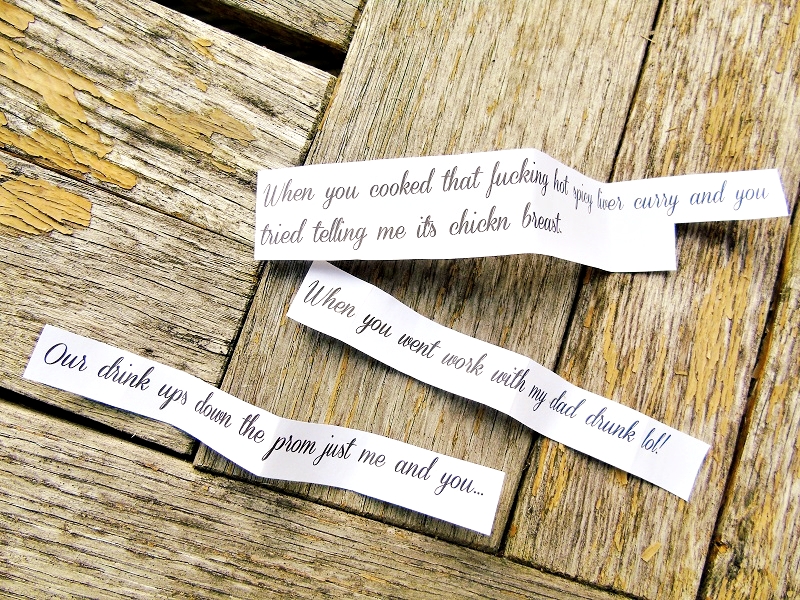 When you cooked that fucking hot spicy liver curry and you
tried telling me it's chickn breast.
When you went work with my dad drunk lol!!
Our drink ups down the prom just me and you...